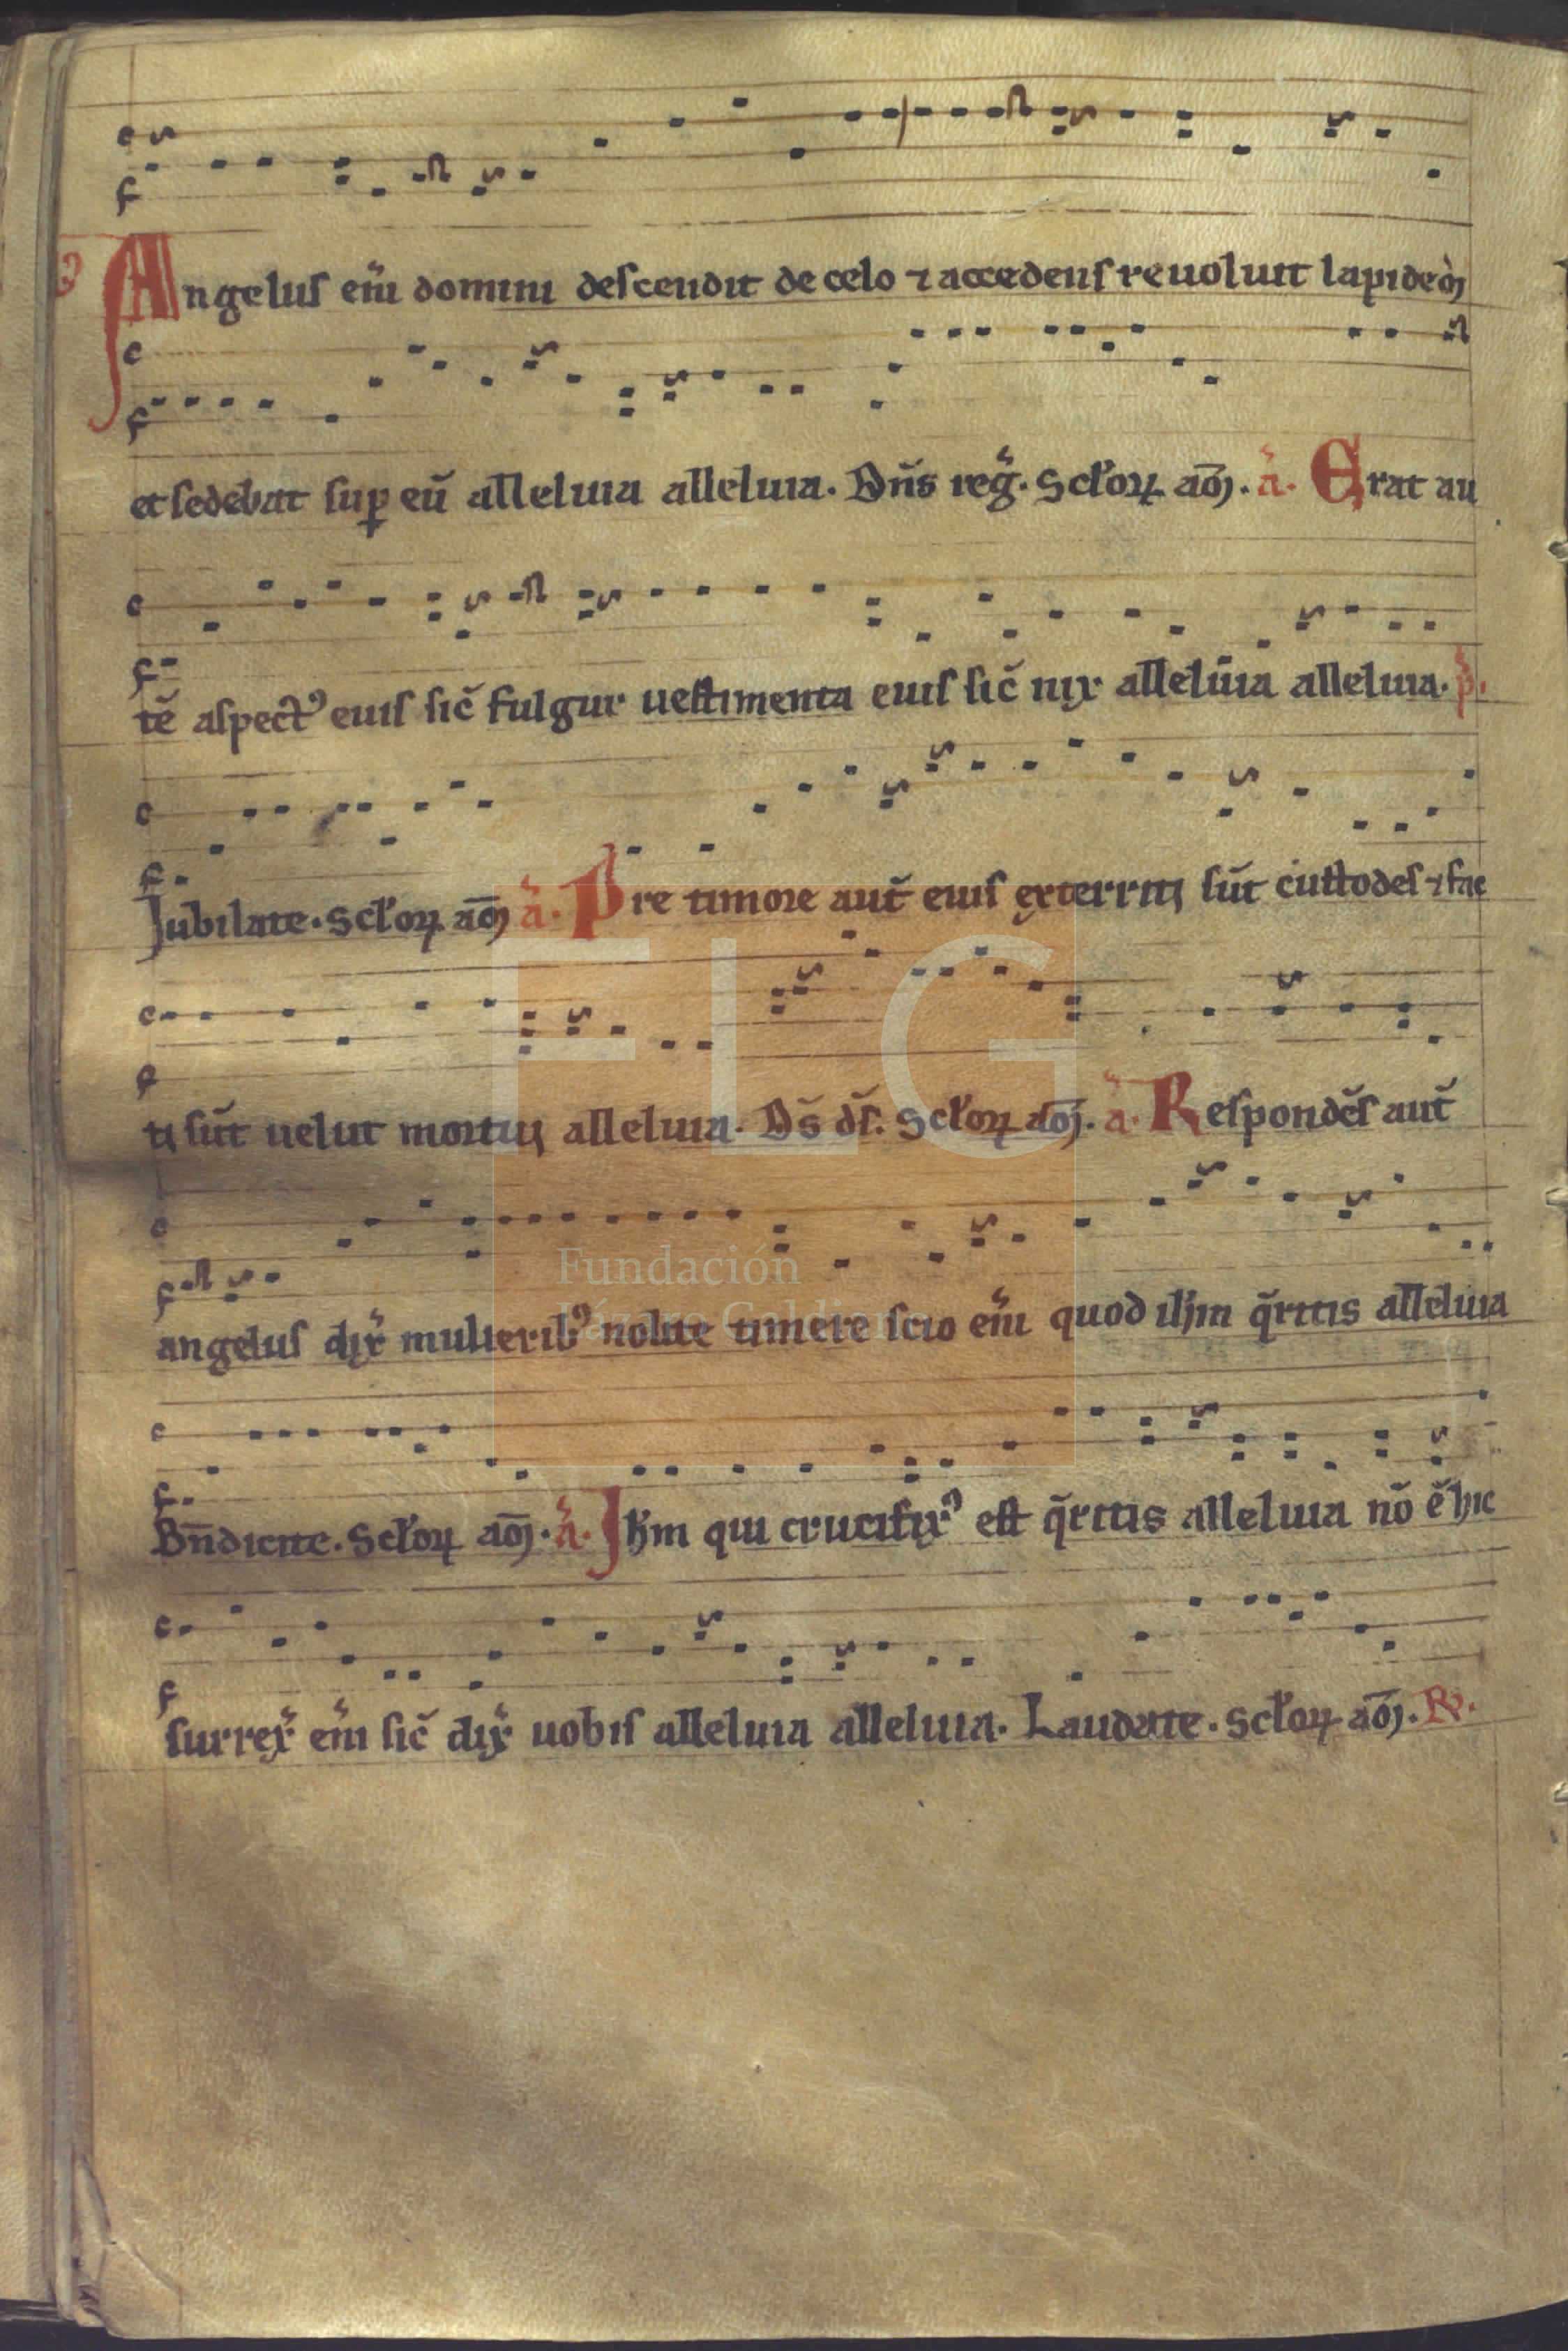 Angelus em̄ domini descendit de celo ⁊ accedens reuoluit lapidem
et sedebat sup eū alleluia alleluia. Dn̄s reg̃. Sclorꝝ am̄. a. Erat au
tē aspectꝰ eius sic̄ fulgur uestimenta eius sic̄ nix alleluia alleluia. p̄.
Jubilate. Sclorꝝ am̄ a. Pre timore aut̄ eius exterriti sūt custodes ⁊ fac
ti sūt uelut mortui alleluia. Ds̄ ds̄. Sclorꝝ am̄. a. Respondēs aut̄
angelus dix̄ mulieribꝰ nolite timere scio em̄ quod ihm q̄ritis alleluia
Bn̄dicite. Sclorꝝ am̄. a. Jhm qui crucifixꝰ est q̄ritis alleluia nō ē hic
surrex̄ em̄ sic̄ dix̄ uobis alleluia alleluia. Laudate. Sclorꝝ am̄. ℟.
FLG
Fundación
Lázaro Galdiano